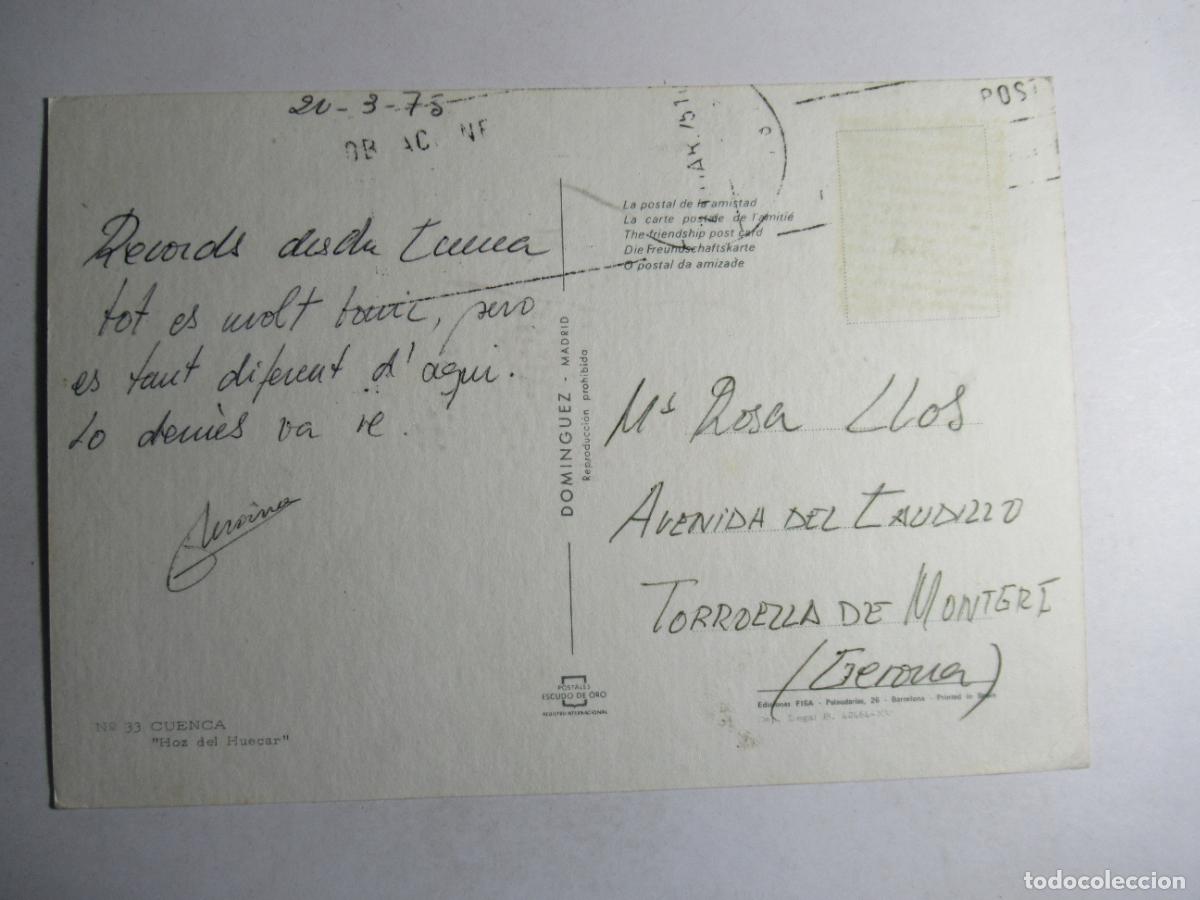 20-3-75
POST
Records desde Cuenca
tot es molt bonic, pero
es tant diferent d'aqui.
Lo demès va re.
La postal de la amistad
La carte postale de l'amitié
The friendship post card
Die Freundschaftskarte
O postal da amizade
DOMINGUEZ - MADRID
Reproducción prohibida
Mª Rosa Llos
AVENIDA DEL CAUDILLO
TORROELLA DE MONTGRÍ
(Gerona)
POSTALES
ESCUDO DE ORO
REGISTRO INTERNACIONAL
Ediciones FISA - Palaudarias, 26 - Barcelona - Printed in Spain
Dep. Legal B.
Nº 33 CUENCA
"Hoz del Huecar"
todocoleccion